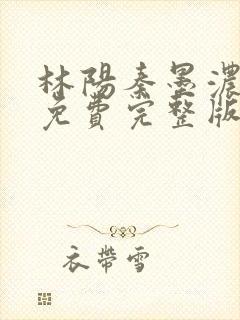 林陽秦墨濃
免費完整版
衣帶雪